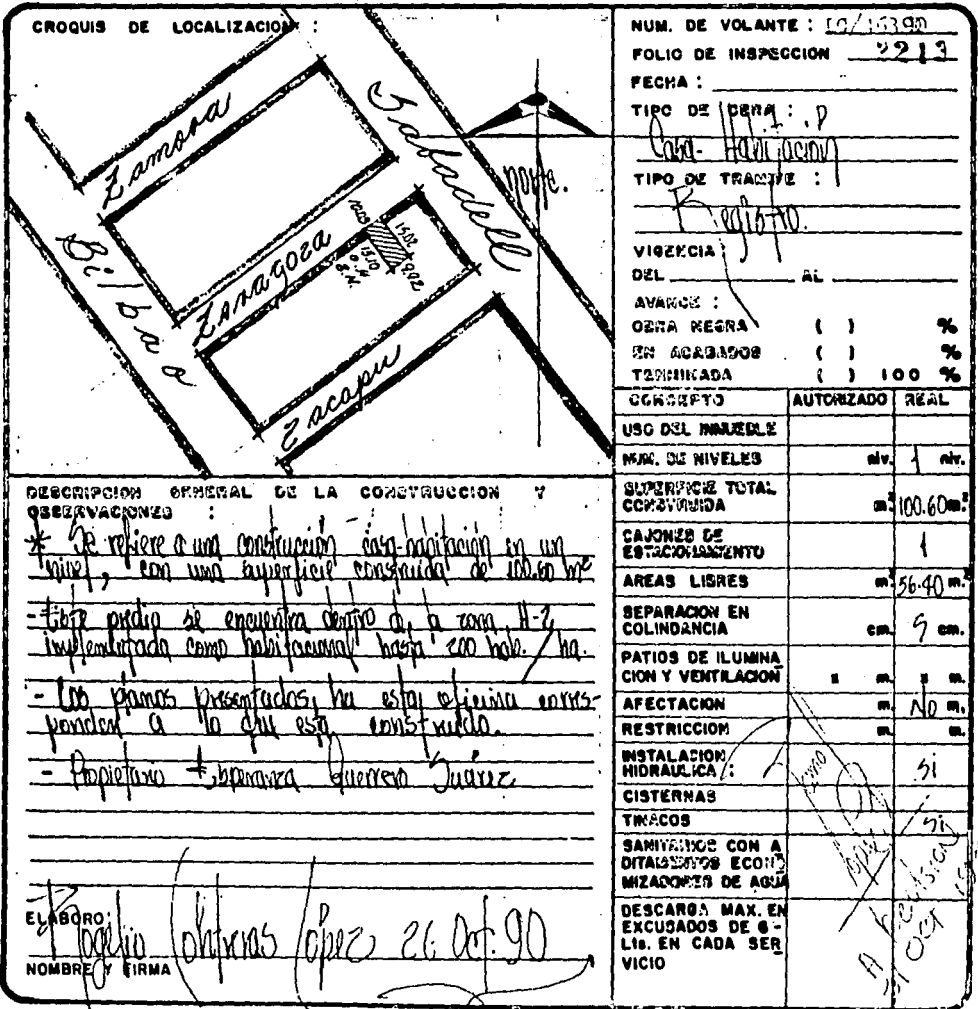 CROQUIS DE LOCALIZACION :
Zamora
Sabadell
norte.
Bilbao
Zaragoza
10.03
15.02
15.10
9.02
Zacapu
NUM. DE VOLANTE :
FOLIO DE INSPECCION 2213
FECHA :
TIPO DE OBRA :
Casa-Habitación
TIPO DE TRAMITE :
Registro.
VIGENCIA :
DEL AL
AVANCE :
OBRA NEGRA ( ) %
EN ACABADOS ( ) %
TERMINADA ( ) 100 %
CONCEPTO AUTORIZADO REAL
USO DEL INMUEBLE
NUM. DE NIVELES niv. 1 niv.
SUPERFICIE TOTAL
CONSTRUIDA m² 100.60 m²
CAJONES DE
ESTACIONAMIENTO 1
AREAS LIBRES m² 56.40 m²
SEPARACION EN
COLINDANCIA cm. 5 cm.
PATIOS DE ILUMINA
CION Y VENTILACION x m. x m.
AFECTACION m. No m.
RESTRICCION m. m.
INSTALACION
HIDRAULICA : si
CISTERNAS
TINACOS si
SANITARIOS CON A
DITAMENTOS ECONO
MIZADORES DE AGUA
DESCARGA MAX. EN
EXCUSADOS DE 6 -
Lts. EN CADA SER
VICIO
A Revision
31 OCT
DESCRIPCION GENERAL DE LA CONSTRUCCION Y
OBSERVACIONES :
* Se refiere a una construcción casa-habitación en un
nivel, con una superficie construida de 100.60 m²
- Este predio se encuentra dentro d la zona H-2
implementada como habitacional hasta 200 hab./ha.
- Los planos presentados, ha esta oficina corres-
ponden a lo que esta construido.
- Propietario Esperanza Guerrero Suárez
ELABORO:
Rogelio Contreras López 26 Oct. 90
NOMBRE Y FIRMA